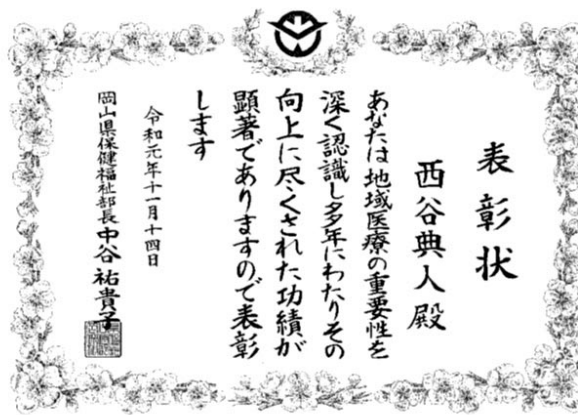 表彰状
西谷典人殿
あなたは地域医療の重要性を
深く認識し多年にわたりその
向上に尽くされた功績が
顕著でありますので表彰
します
令和元年十一月十四日
岡山県保健福祉部長 中谷祐貴子